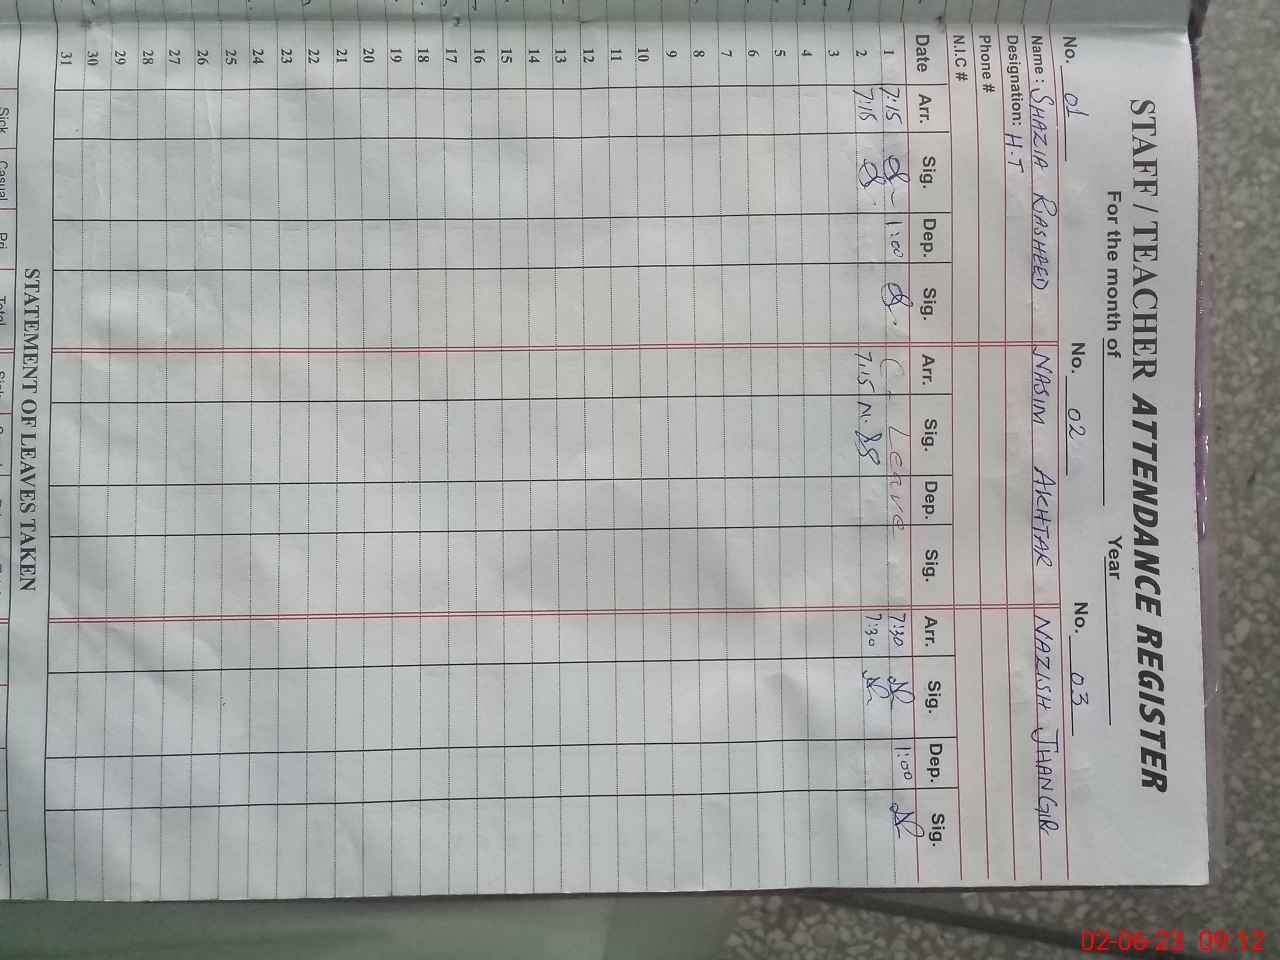 STAFF / TEACHER ATTENDANCE REGISTER
For the month of Year
No. 01 No. 02 No. 03
Name : SHAZIA RASHEED NASIM AKHTAR NAZISH JHANGIR
Designation: H.T
Phone #
N.I.C #
Date Arr. Sig. Dep. Sig. Arr. Sig. Dep. Sig. Arr. Sig. Dep. Sig.
1 7:15 1:00 C. Leave 7:30 1:00
2 7:15 7:15 7:30
3
4
5
6
7
8
9
10
11
12
13
14
15
16
17
18
19
20
21
22
23
24
25
26
27
28
29
30
31
STATEMENT OF LEAVES TAKEN
Sick Casual Pri Total
02-06-23 09:12